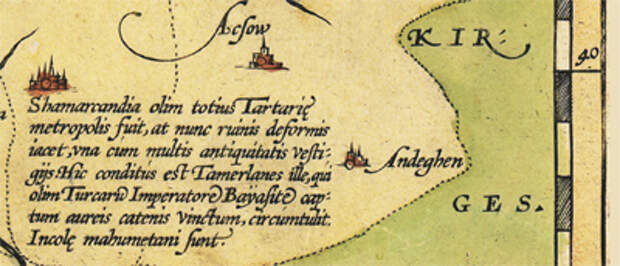 Acsow
KIR
40
Shamarcandia olim totius Tartarię
metropolis fuit, at nunc ruinis deformis
iacet, vna cum multis antiquitatis vesti-
gijs. Hic conditus est Tamerlanes ille, qui
olim Turcarū Imperatorē Bayasitē cap-
tum aureis catenis vinctum, circūmtulit.
Incolę mahumetani sunt.
Andeghen
GES.